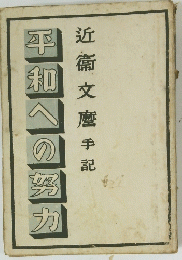 近衞文麿手記
平和への努力